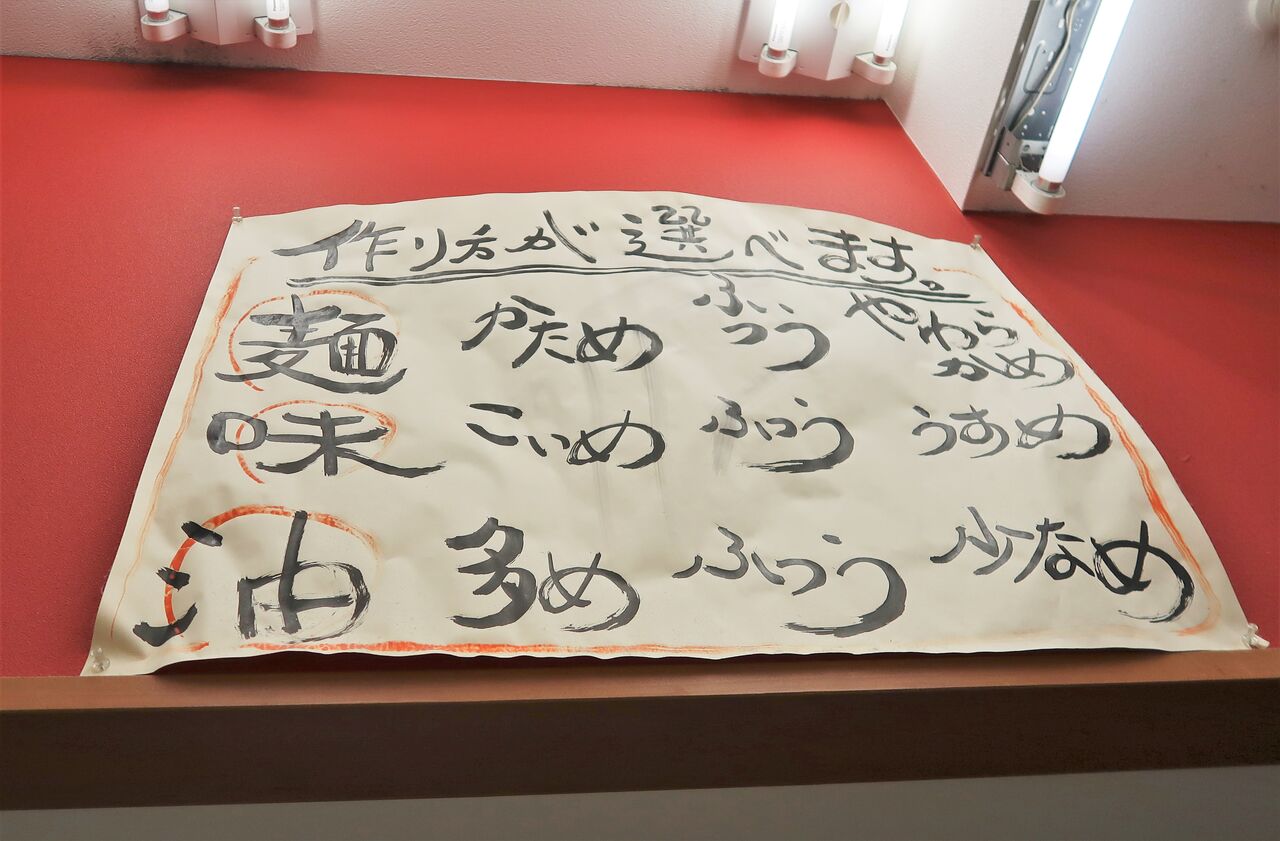 作り方が選べます。
麺 かため ふつう やわらかめ
味 こいめ ふつう うすめ
油 多め ふつう 少なめ